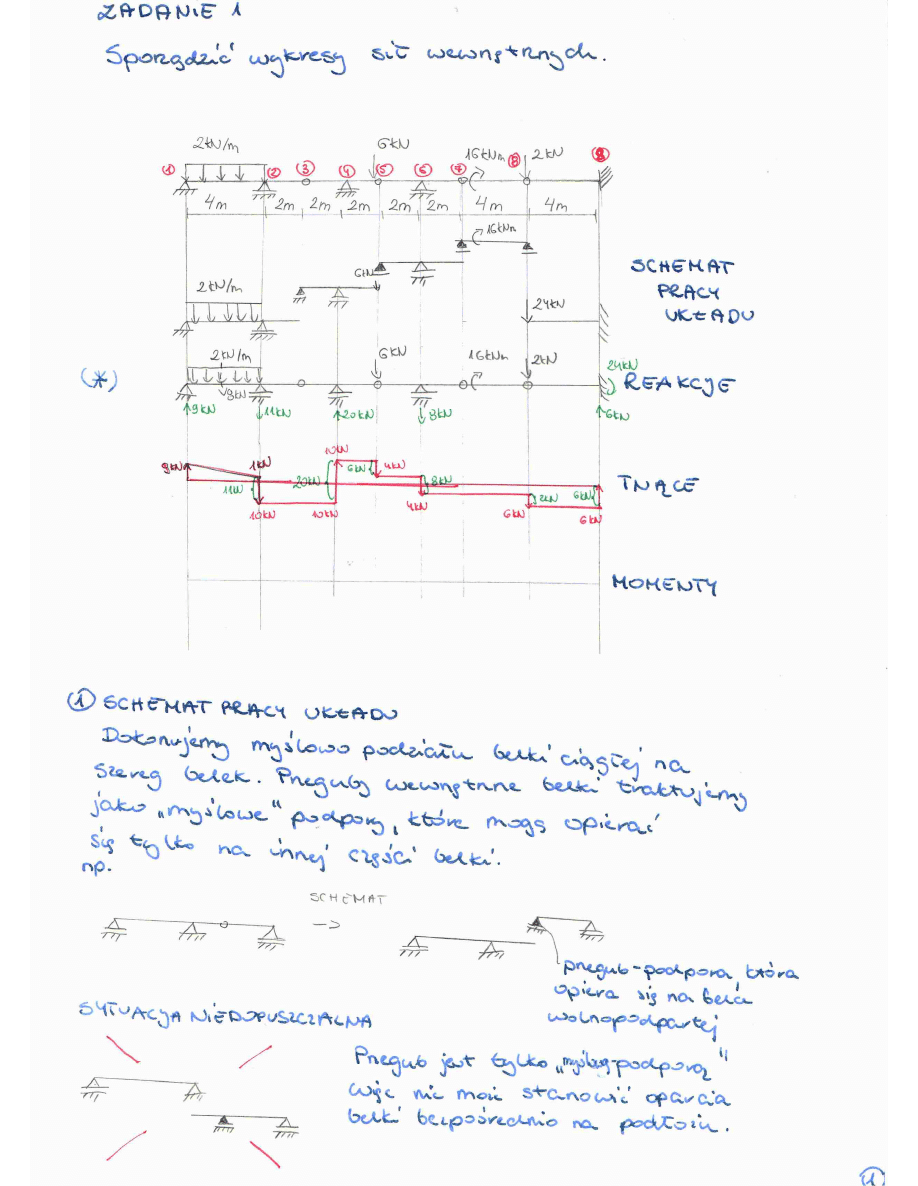 ZADANIE 1
Sporządzić wykresy sił wewnętrznych.
2kN/m 6kN 16kNm 2kN
1 2 3 4 5 6 7 8 9
4m 2m 2m 2m 2m 2m 4m 4m
16kNm
6kN
SCHEMAT
PRACY
UKŁADU
2kN/m 24kN
2kN/m 6kN 16kNm 2kN 24kN
(*) 8kN REAKCJE
9kN 11kN 20kN 8kN 6kN
10kN
9kN 1kN 6kN 4kN
11kN 20kN 8kN 2kN 6kN TNĄCE
10kN 10kN 4kN 6kN 6kN
MOMENTY
1 SCHEMAT PRACY UKŁADU
Dokonujemy myślowo podziału belki ciągłej na
szereg belek. Przeguby wewnętrzne belki traktujemy
jako „myślowe“ podpory, które mogą opierać
się tylko na innej części belki.
np.
SCHEMAT
->
przegub-podpora, która
opiera się na belce
wolnopodpartej
SYTUACJA NIEDOPUSZCZALNA
Przegub jest tylko „myślową-podporą“
więc nie może stanowić oparcia
belki bezpośrednio na podłożu.
1